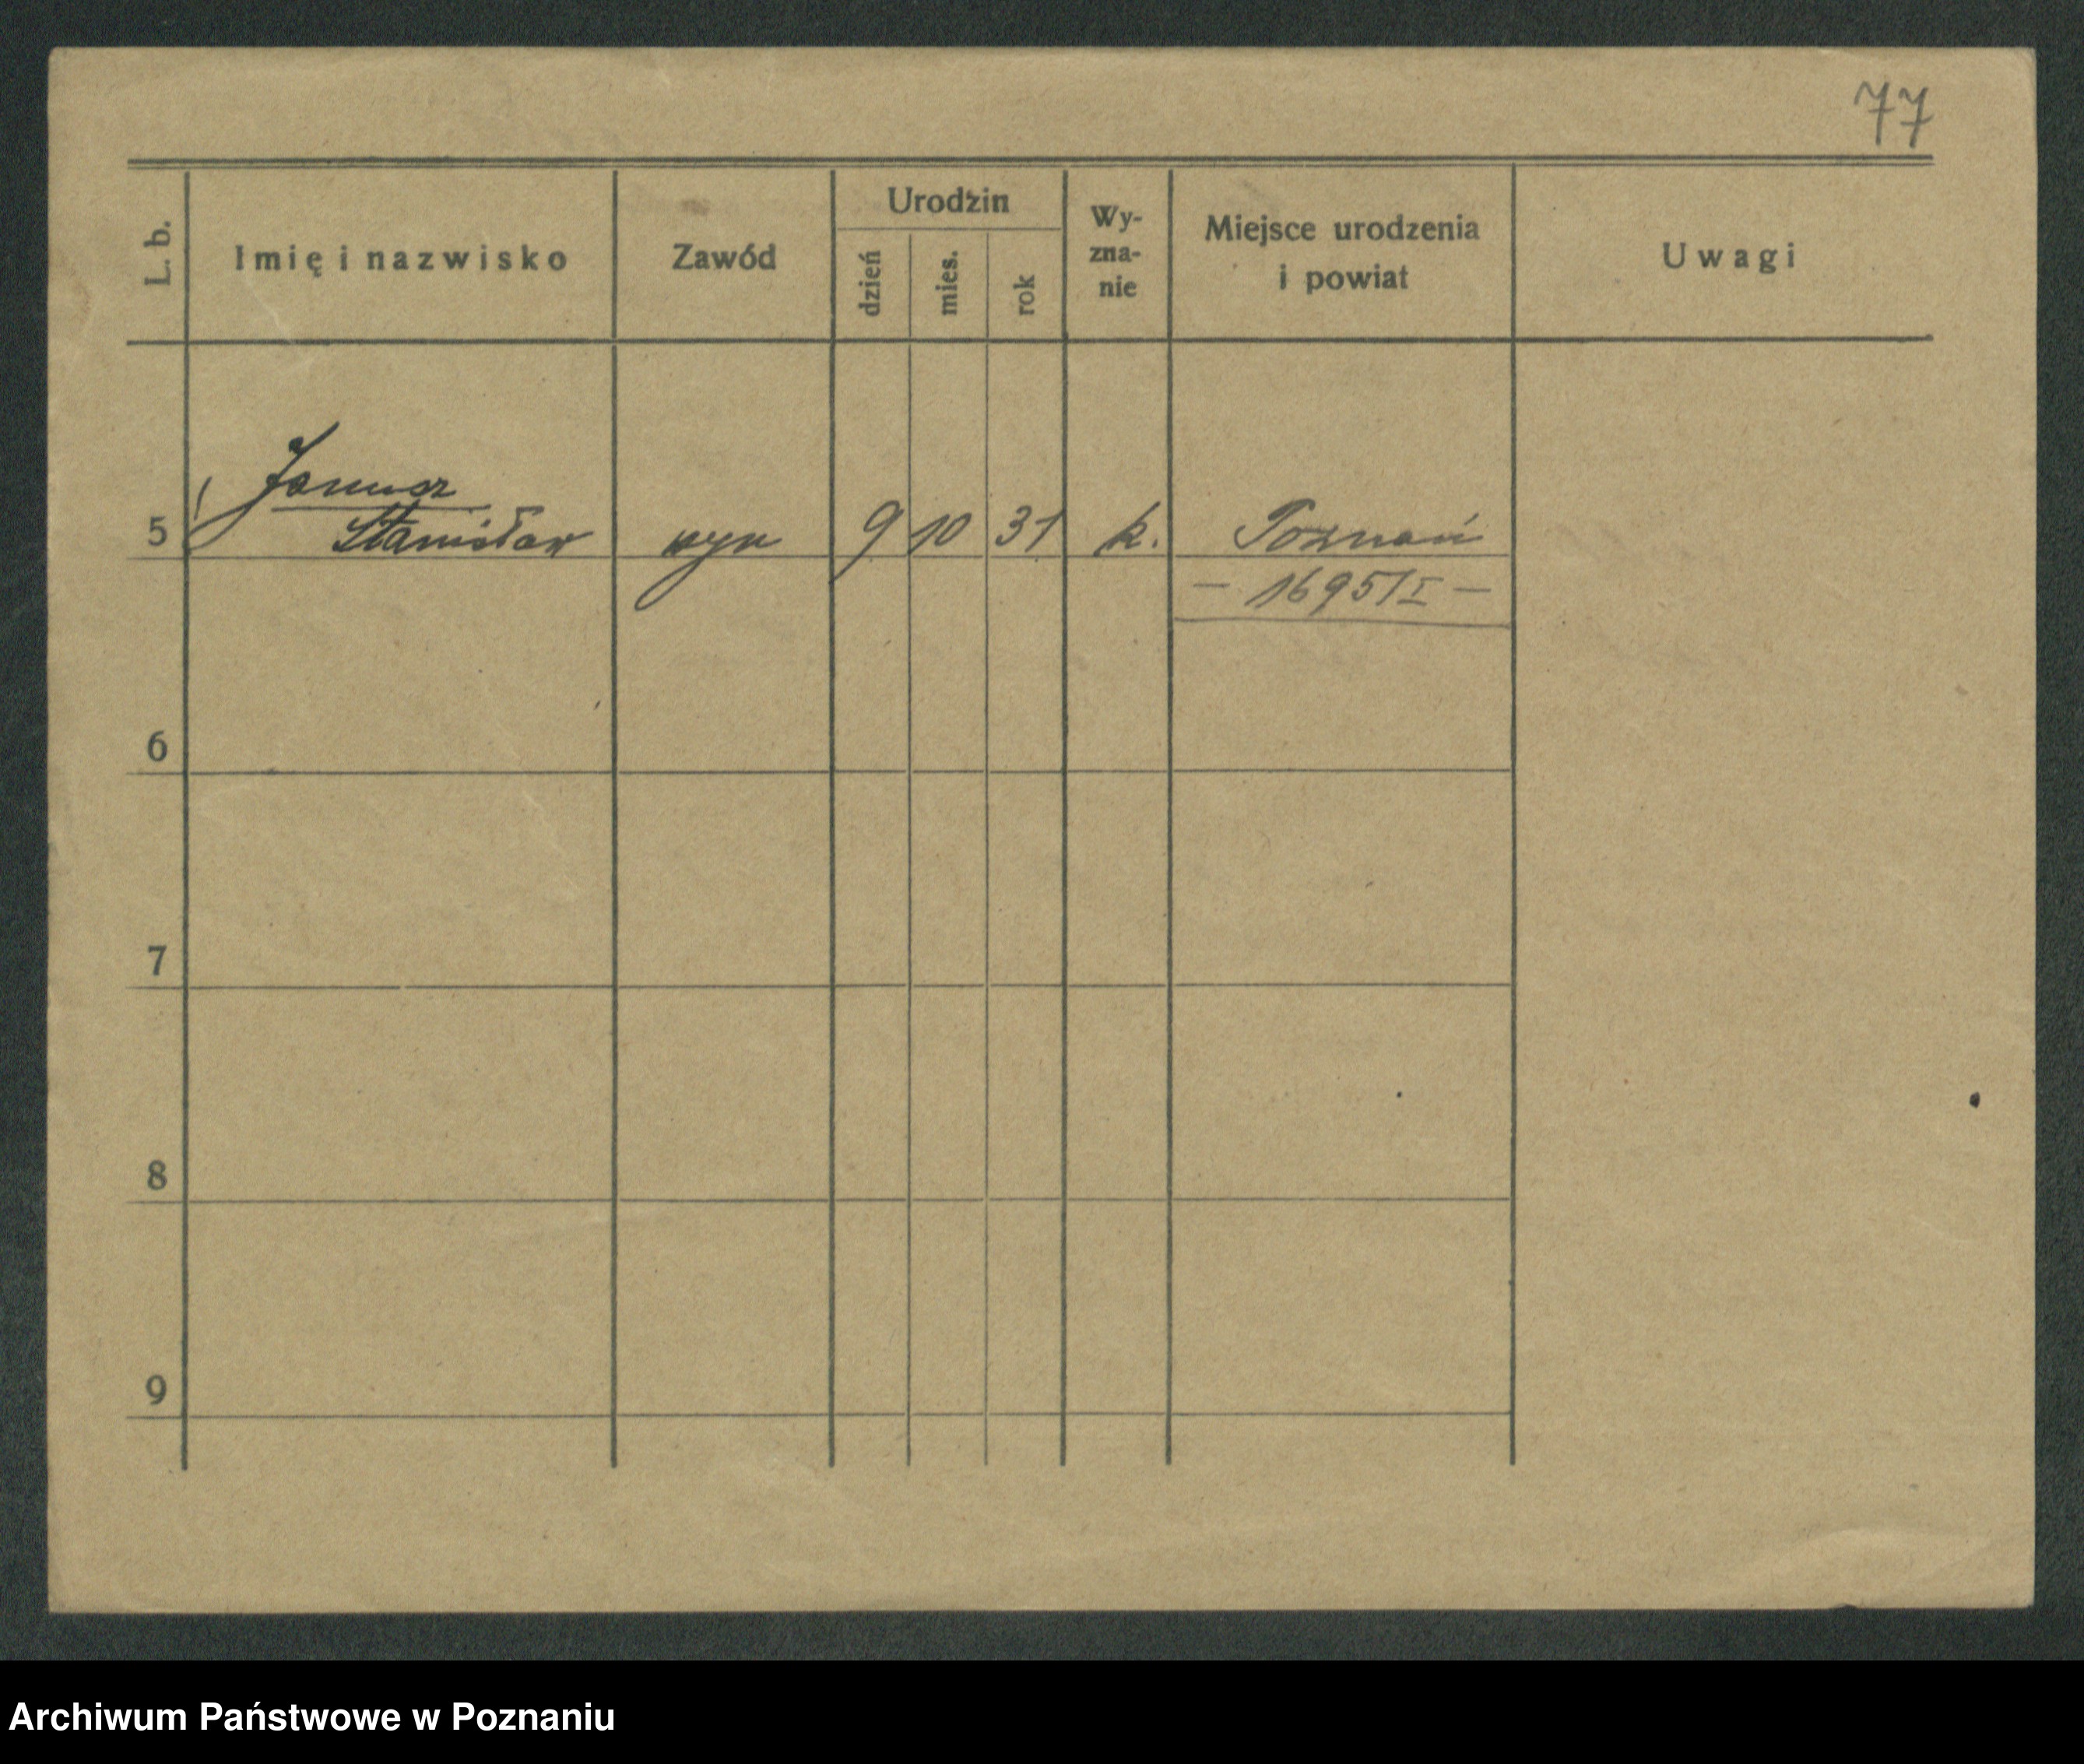 77
L. b.
Imię i nazwisko
Zawód
Urodzin
dzień
mies.
rok
Wy-
zna-
nie
Miejsce urodzenia
i powiat
Uwagi
Janusz
5 Stanisław syn 9 10 31 k. Poznań
— 16951/I —
6
7
8
9
Archiwum Państwowe w Poznaniu